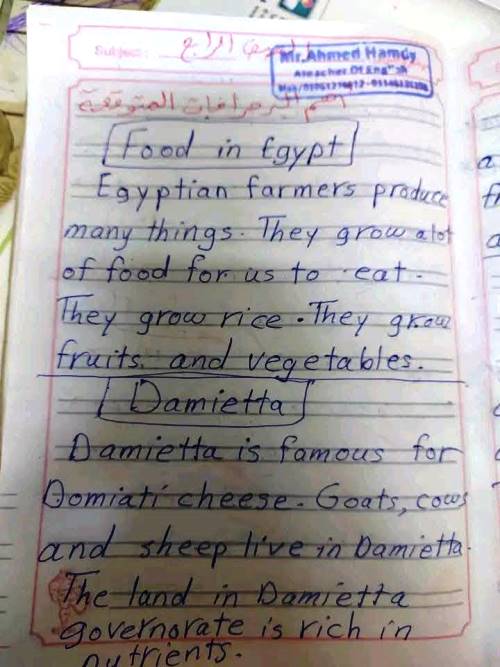 Subject: الصف الرابع
Mr. Ahmed Hamdy
A teacher Of English
أهم البرجرافات المتوقعة
Food in Egypt
Egyptian farmers produce
many things. They grow alot
of food for us to eat.
They grow rice. They grow
fruits and vegetables.
Damietta
Damietta is famous for
Domiati cheese. Goats, cows
and sheep live in Damietta.
The land in Damietta
governorate is rich in
nutrients.